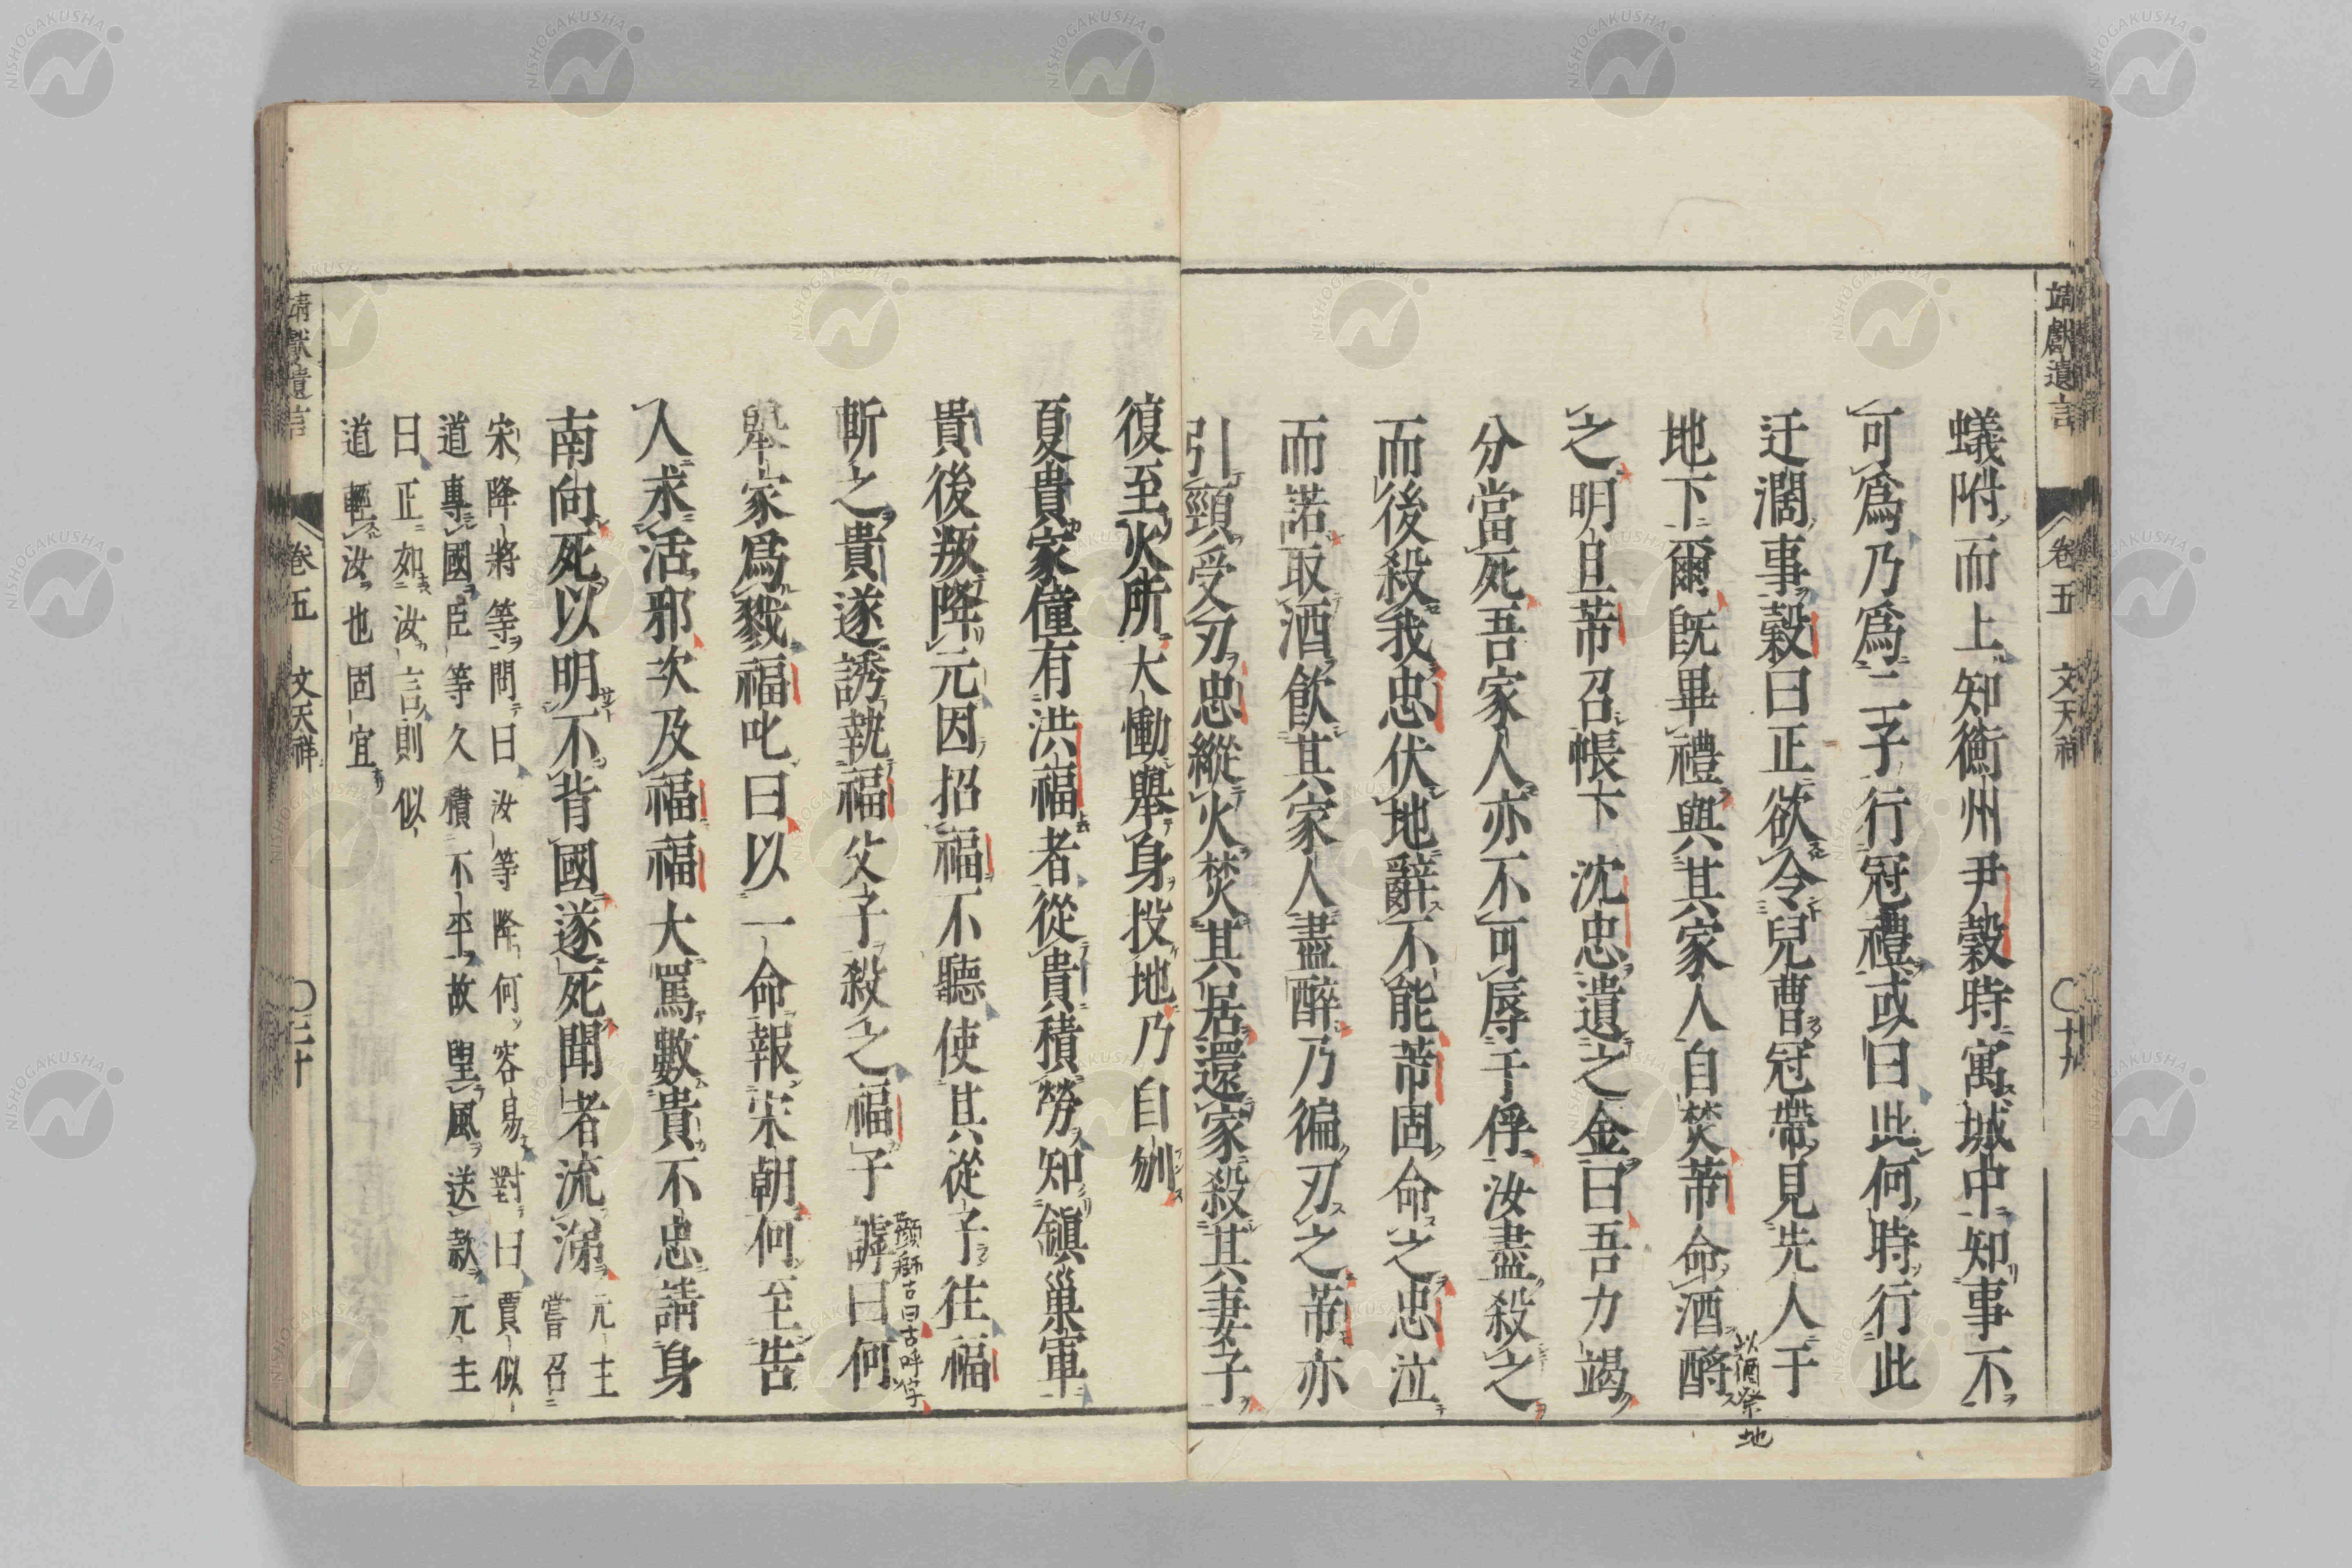 靖獻遺言 卷五 文天祥 〇廿九
蟻附而上知衡州尹穀時寓城中知事不
可爲乃爲二子行冠禮或曰此何時行此
迂濶事穀曰正欲令兒曹冠帶見先人于
地下爾既畢禮與其家人自焚芾命酒酹
以酒祭地
之明旦芾召帳下沈忠遺之金曰吾力竭
分當死吾家人亦不可辱于俘汝盡殺之
而後殺我忠伏地辭不能芾固命之忠泣
而諾取酒飮其家人盡醉乃徧刃之芾亦
引頸受刃忠縱火焚其居還家殺其妻子
復至火所大慟擧身投地乃自刎
夏貴家僮有洪福者從貴積勞知鎭巢軍
貴後叛降元因招福不聽使其從子往福
斬之貴遂誘執福父子殺之福子謼曰何
顏師古曰古呼字
擧家爲戮福叱曰以一命報宋朝何至告
人求活邪次及福福大罵數貴不忠請身
南向死以明不背國遂死聞者流涕元主
嘗召
宋降將等問曰汝等降何容易對曰賈似
道專國臣等久積不平故望風送款元主
曰正如汝言則似
道輕汝也固宜
靖獻遺言 卷五 文天祥 〇三十